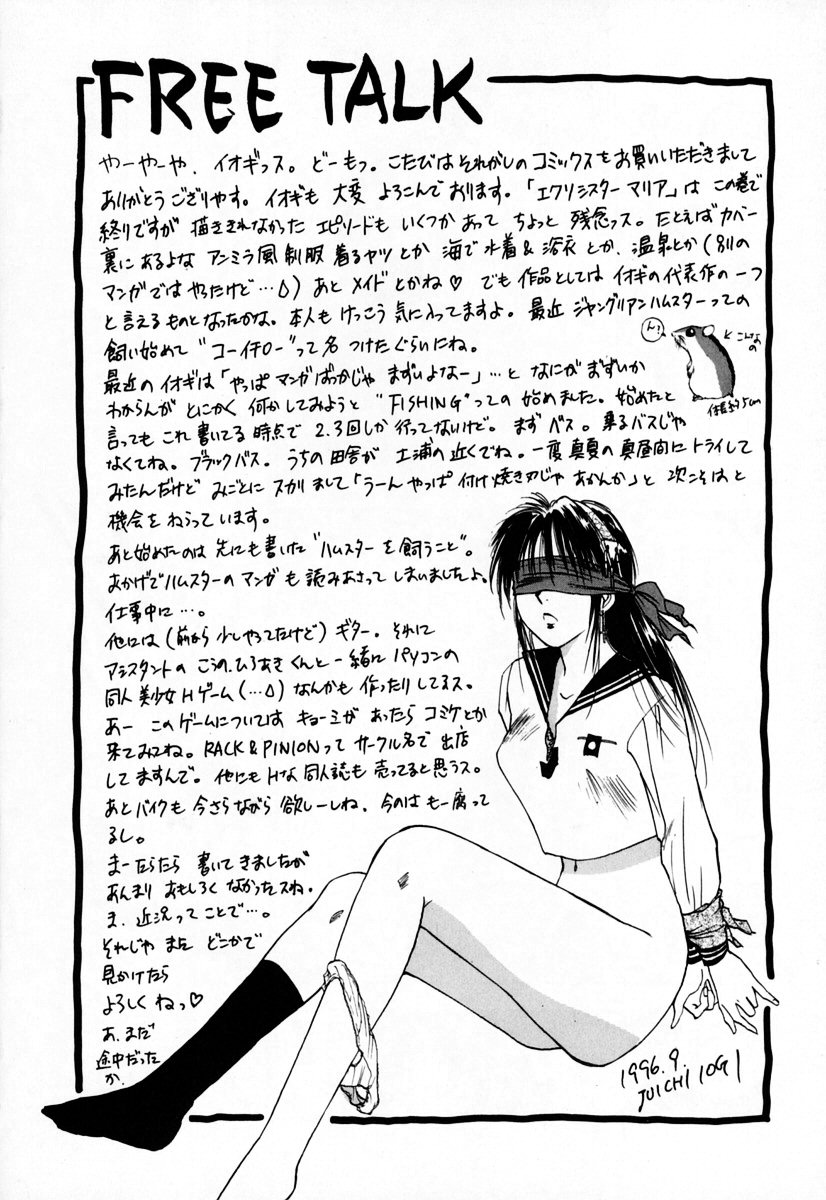 FREE TALK
やーやーや、イオギっス。どーもっ。こたびはそれがしのコミックスをお買いいただきまして
ありがとうござりやす。イオギも大変よろこんでおります。「エクソシスターマリア」はこの巻で
終りですが描ききれなかったエピソードもいくつかあってちょっと残念っス。たとえばカバー
裏にあるよなアンミラ風制服着るヤツとか海で水着&浴衣とか、温泉とか(別の
マンガではやったけど…Δ)あとメイドとかね♡でも作品としてはイオギの代表作の一つ
と言えるものとなったかな。本人もけっこう気に入ってますよ。最近ジャングリアンハムスターっての
飼い始めて"コーイチロー"って名つけたぐらいにね。
ん!
こんなの
体長約5cm
最近のイオギは「やっぱマンガばっかじゃまずいよなー」…となにがまずいか
わからんがとにかく何かしてみようと"FISHING"っての始めました。始めたと
言ってもこれ書いてる時点で2.3回しか行ってないけど。まずバス。乗るバスじゃ
なくてね。ブラックバス。うちの田舎が土浦の近くでね。一度真夏の真昼間にトライして
みたんだけどみごとにスカりまして「うーんやっぱ付け焼き刃じゃあかんか」と次こそはと
機会をねらっています。
あと始めたのは先にも書いた"ハムスターを飼うこと"。
おかげでハムスターのマンガも読みあさってしまいましたよ。
仕事中に…。
他には(前から少しやってたけど)ギター。それに
アシスタントのこうのひろあきくんと一緒にパソコンの
同人美少女Hゲーム(…Δ)なんかも作ったりしてるス。
あーこのゲームについてはキョーミがあったらコミケとか
来てみてね。RACK&PINIONってサークル名で出店
してますんで。他にもHな同人誌も売ってると思うス。
あとバイクも今さらながら欲しーしね、今のはもー腐って
るし。
まーたらたら書いてきましたが
あんまりおもしろくなかったスね。
ま、近況ってことで…。
それじゃまたどこかで
見かけたら
よろしくねっ♡
あ、まだ
途中だった
か、
1996.9.
JUICHI IOGI